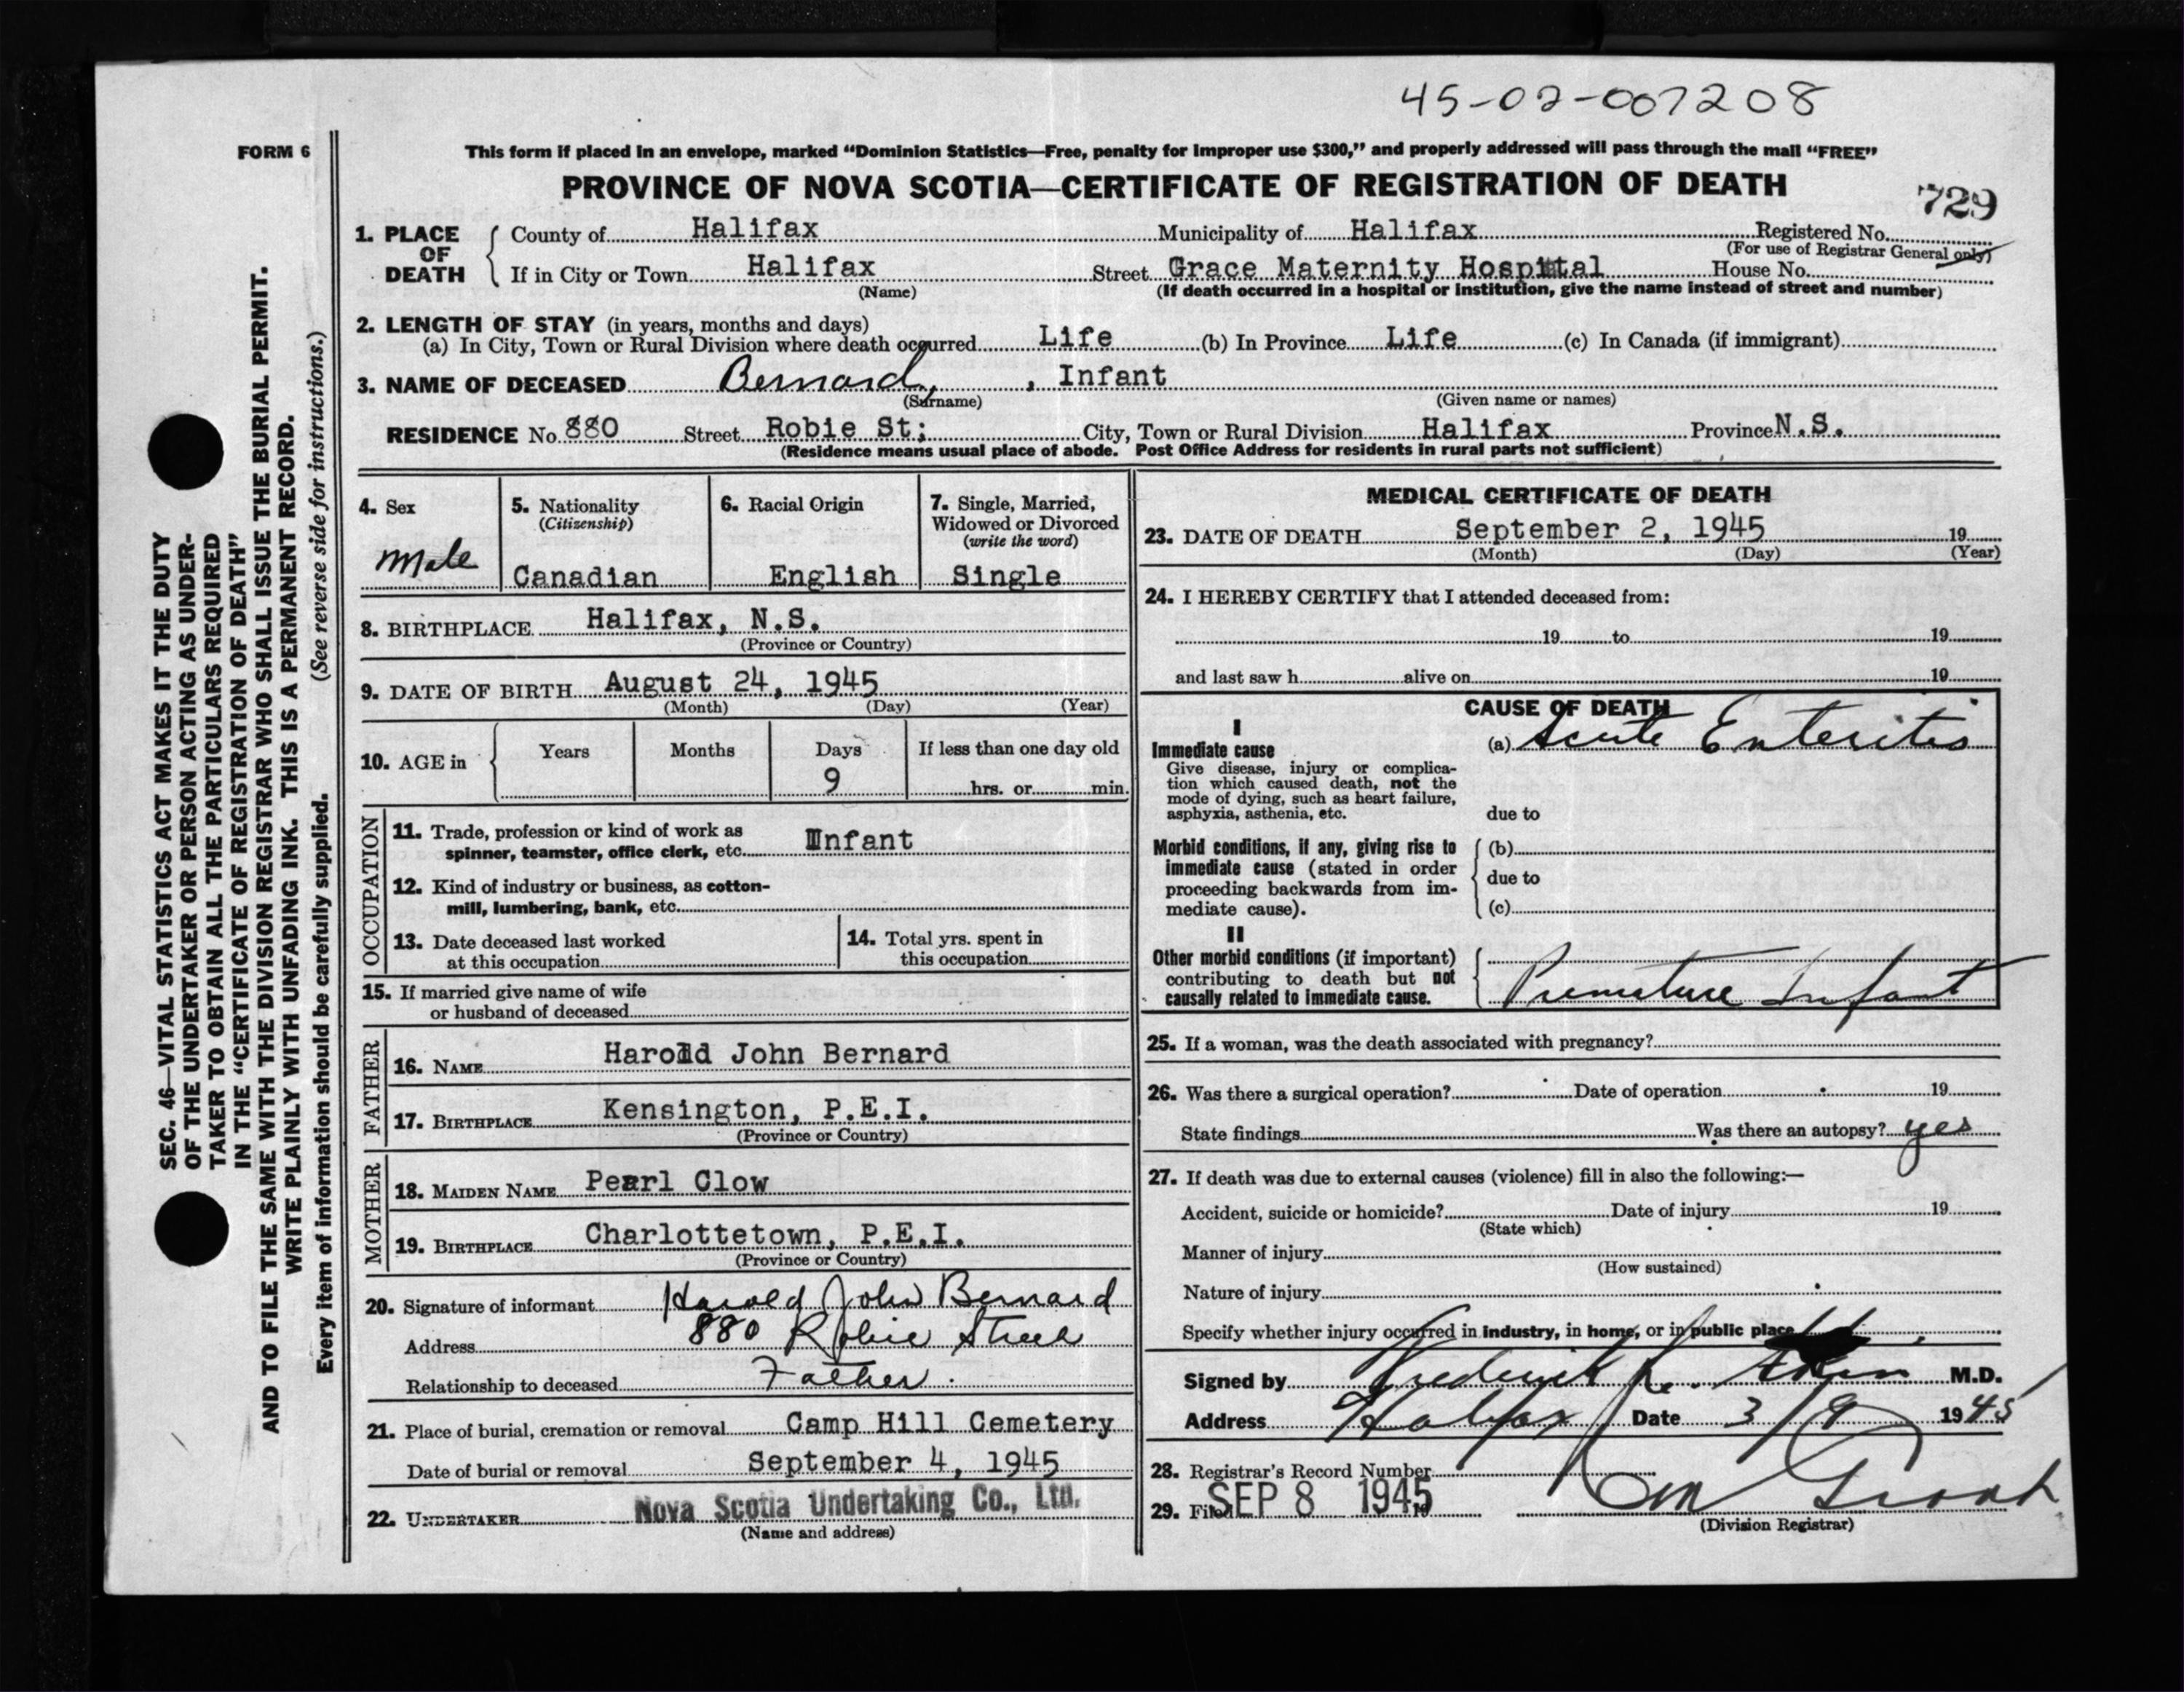 45-02-007208
FORM 6
This form if placed in an envelope, marked "Dominion Statistics—Free, penalty for improper use $300," and properly addressed will pass through the mail "FREE"
PROVINCE OF NOVA SCOTIA—CERTIFICATE OF REGISTRATION OF DEATH
729
1. PLACE OF DEATH
County of Halifax Municipality of Halifax Registered No.
(For use of Registrar General only)
If in City or Town Halifax Street Grace Maternity Hospital House No.
(Name) (If death occurred in a hospital or institution, give the name instead of street and number)
2. LENGTH OF STAY (in years, months and days)
(a) In City, Town or Rural Division where death occurred Life (b) In Province Life (c) In Canada (if immigrant)
3. NAME OF DECEASED Bernard, , Infant
(Surname) (Given name or names)
RESIDENCE No. 880 Street Robie St; City, Town or Rural Division Halifax Province N.S.
(Residence means usual place of abode. Post Office Address for residents in rural parts not sufficient)
4. Sex
Male
5. Nationality
(Citizenship)
Canadian
6. Racial Origin
English
7. Single, Married,
Widowed or Divorced
(write the word)
Single
8. BIRTHPLACE Halifax, N.S.
(Province or Country)
9. DATE OF BIRTH August 24, 1945
(Month) (Day) (Year)
10. AGE in Years Months Days If less than one day old
9 hrs. or min.
OCCUPATION
11. Trade, profession or kind of work as
spinner, teamster, office clerk, etc. Infant
12. Kind of industry or business, as cotton-
mill, lumbering, bank, etc.
13. Date deceased last worked
at this occupation
14. Total yrs. spent in
this occupation
15. If married give name of wife
or husband of deceased
FATHER
16. NAME Harold John Bernard
17. BIRTHPLACE Kensington, P.E.I.
(Province or Country)
MOTHER
18. MAIDEN NAME Pearl Clow
19. BIRTHPLACE Charlottetown, P.E.I.
(Province or Country)
20. Signature of informant Harold John Bernard
Address 880 Robie Street
Relationship to deceased Father.
21. Place of burial, cremation or removal Camp Hill Cemetery
Date of burial or removal September 4, 1945
22. UNDERTAKER Nova Scotia Undertaking Co., Ltd.
(Name and address)
MEDICAL CERTIFICATE OF DEATH
23. DATE OF DEATH September 2, 1945 19
(Month) (Day) (Year)
24. I HEREBY CERTIFY that I attended deceased from:
19 to 19
and last saw h alive on 19
CAUSE OF DEATH
I
Immediate cause (a) Acute Enteritis
Give disease, injury or complica-
tion which caused death, not the
mode of dying, such as heart failure,
asphyxia, asthenia, etc. due to
Morbid conditions, if any, giving rise to (b)
immediate cause (stated in order
proceeding backwards from im- due to
mediate cause). (c)
II
Other morbid conditions (if important)
contributing to death but not
causally related to immediate cause. Premature Infant
25. If a woman, was the death associated with pregnancy?
26. Was there a surgical operation? Date of operation 19
State findings Was there an autopsy? yes
27. If death was due to external causes (violence) fill in also the following:—
Accident, suicide or homicide? Date of injury 19
(State which)
Manner of injury
(How sustained)
Nature of injury
Specify whether injury occurred in industry, in home, or in public place
Signed by Frederick M.D.
Address Halifax Date 3/9 1945
28. Registrar's Record Number
29. Filed SEP 8 1945 19
(Division Registrar)
SEC. 46—VITAL STATISTICS ACT MAKES IT THE DUTY
OF THE UNDERTAKER OR PERSON ACTING AS UNDER-
TAKER TO OBTAIN ALL THE PARTICULARS REQUIRED
IN THE "CERTIFICATE OF REGISTRATION OF DEATH"
AND TO FILE THE SAME WITH THE DIVISION REGISTRAR WHO SHALL ISSUE THE BURIAL PERMIT.
WRITE PLAINLY WITH UNFADING INK. THIS IS A PERMANENT RECORD.
Every item of information should be carefully supplied. (See reverse side for instructions.)